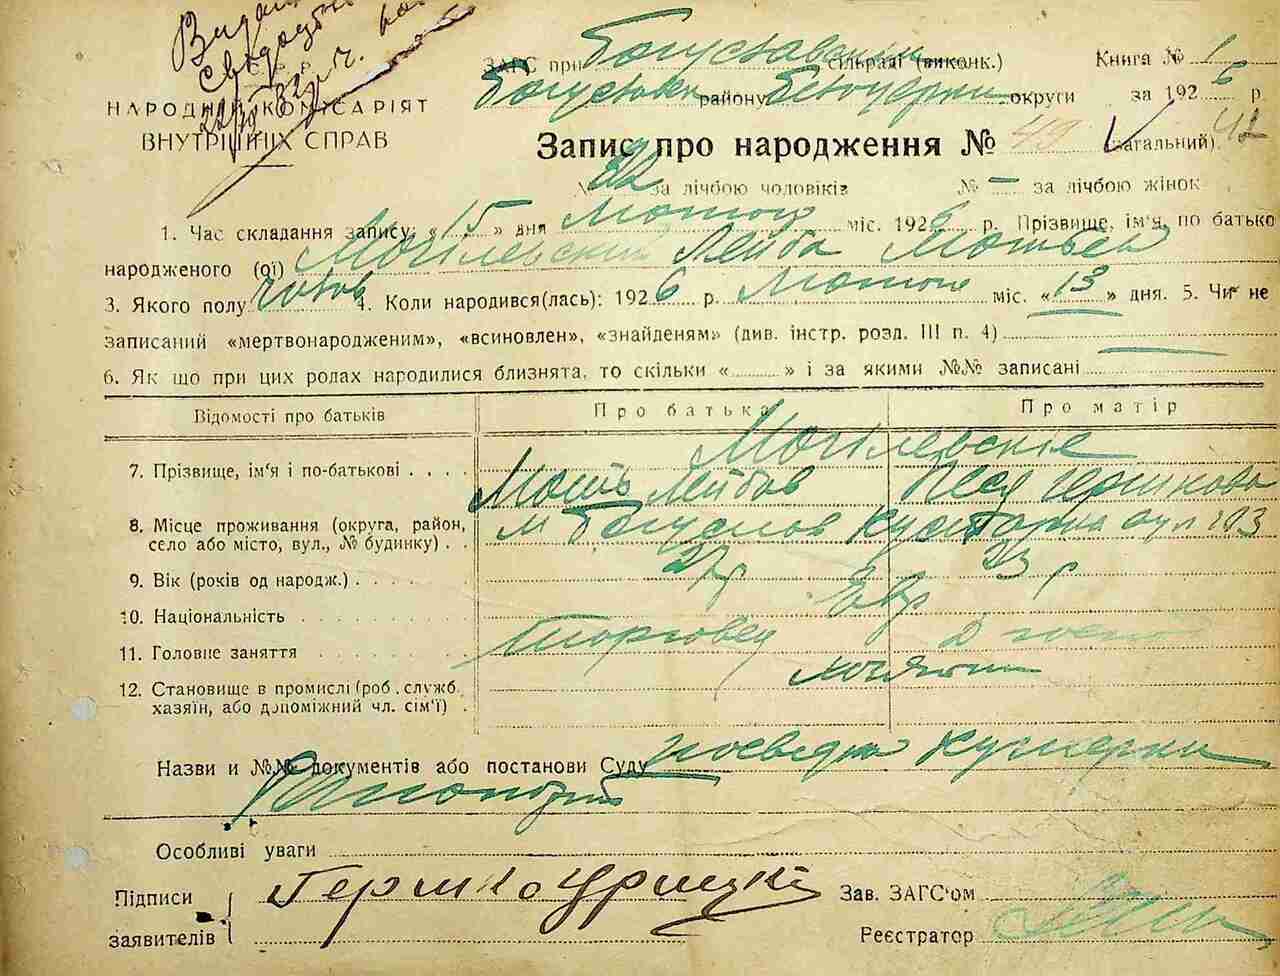 Видано
С.Р.Р.
НАРОДНИЙ КОМІСАРІЯТ
ВНУТРІШНІХ СПРАВ
ЗАГС при Богуславськ сільраді (виконк.) Книга № 1
Богуславськ району Білоцерк округи за 1926 р.
Запис про народження № 49 (загальний). 42
№ 22 за лічбою чоловіків № – за лічбою жінок
1. Час складання запису: « 15 » дня Лютого міс. 1926 р. Прізвище, ім'я, по батько
народженого (ої) Могілевский Лейба Мотьев
3. Якого полу чолов 4. Коли народився(лась): 1926 р. Лютого міс. « 13 » дня. 5. Чи не
записаний «мертвонародженим», «всиновлен», «знайденям» (див. інстр. розд. III п. 4)
6. Як що при цих ролах народилися близнята, то скільки « » і за якими №№ записані
Відомості про батьків Про батька Про матір
Могілевскіе
7. Прізвище, ім'я і по-батькові . . . . Моть Лейбов Песя Гершкова
8. Місце проживання (округа, район,
село або місто, вул., № будинку) . . м Богуслав вул 103
9. Вік (років од народж.) . . . . 27 р 23 р
10. Національність Євр
11. Головне заняття Торговец Д госпо
12. Становище в промислі (роб. служб.
хазяїн, або допоміжний чл. сім'ї) .
Назви и №№ документів або постанови Суду
Особливі уваги
Підписи Гершко Урицкі Зав. ЗАГС'ом
заявителів Реєстратор